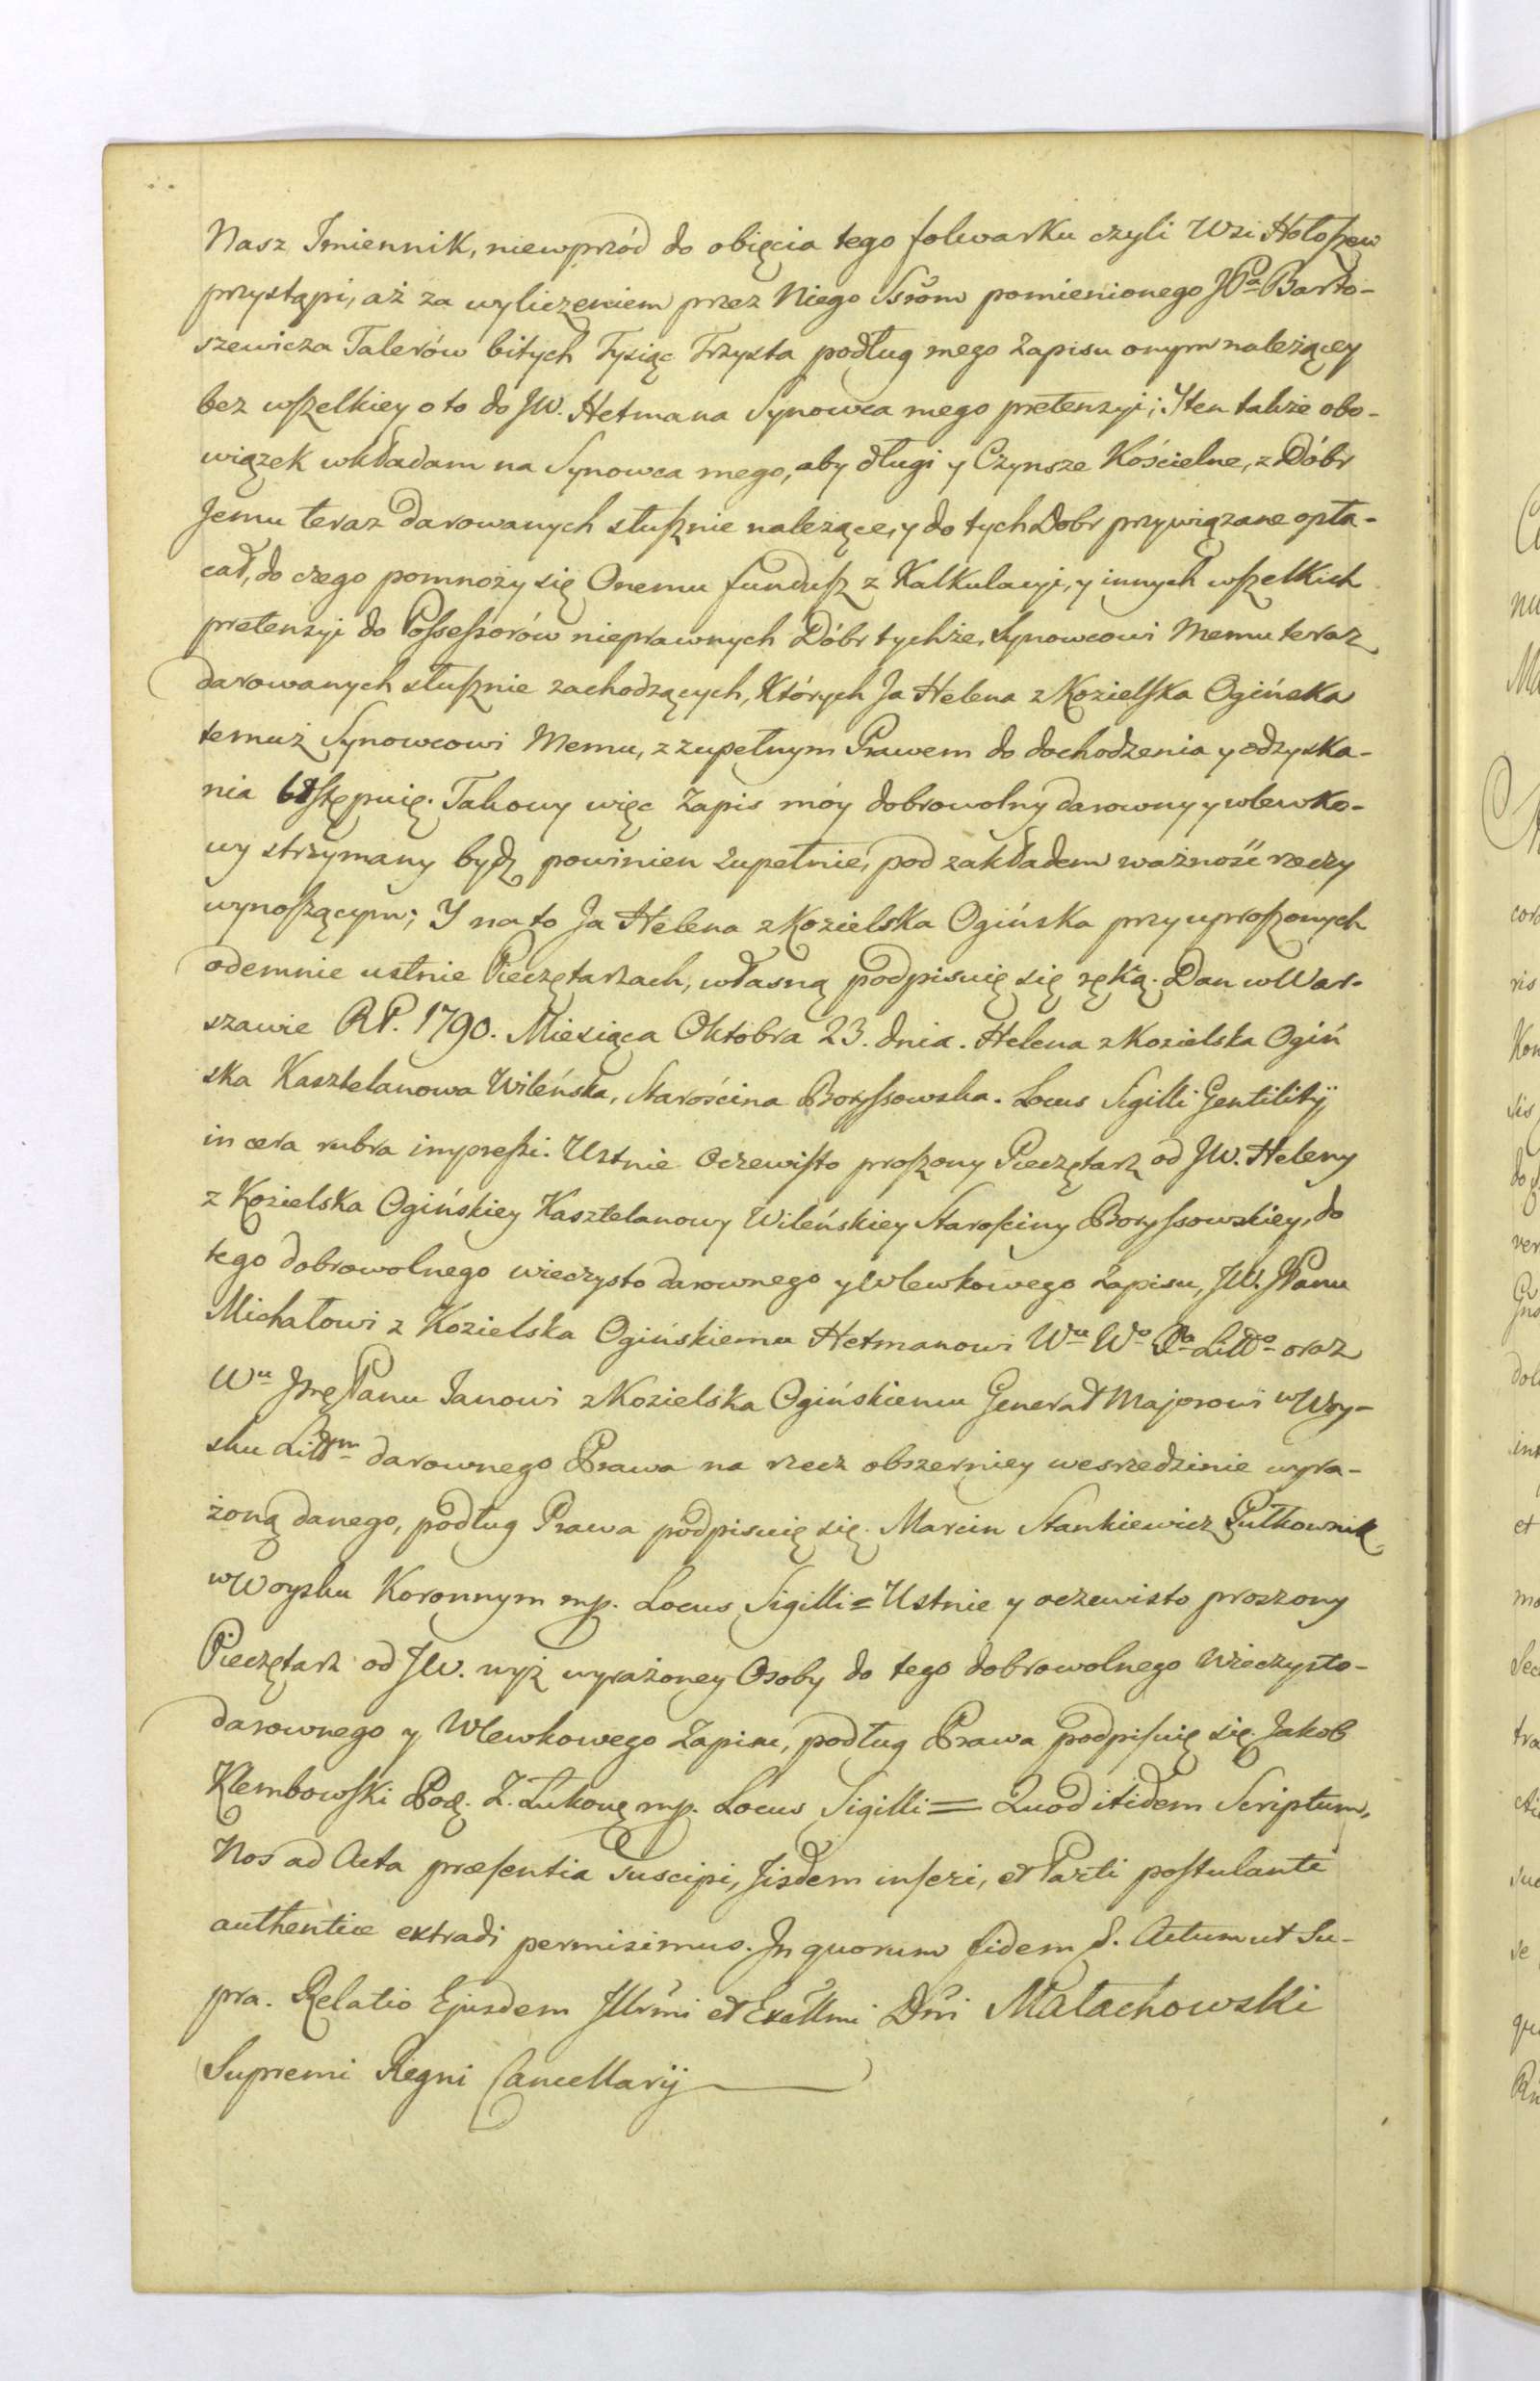 Nasz Imiennik, niewprzód do obięcia tego folwarku czyli Wsi Hołoszew
przystąpi, aż za wyliczeniem przez Niego Ssrom pomienionego JPa Barto-
szewicza Talerów bitych Tysiąc Trzysta podług mego Zapisu onym należącey
bez wszelkiey o to do JW. Hetmana Synowca mego pretensyi; Y ten także obo-
wiązek wkładam na Synowca mego, aby długi y Czynsze Kościelne, z Dóbr
Jemu teraz darowanych słusznie należące, y do tych Dobr przywiązane opła-
cał, do czego pomnoży się Onemu fundusz z Kalkulacyi, y innych wszelkich
pretensyi do Possessorów nieprawnych Dóbr tychże, Synowcowi Memu teraz
darowanych słusznie zachodzących, Których Ja Helena z Kozielska Ogińska
temuż Synowcowi Memu, z zupełnym Prawem do dochodzenia y odzyska-
nia Ustępuię. Takowy więc Zapis móy dobrowolny darowny y wlewko-
wy strzymany bydź powinien zupełnie, pod zakładem ważność rzeczy
wynoszącym; Y na to Ja Helena z Kozielska Ogińska przy uproszonych
odemnie ustnie Pieczętarzach, własną podpisuię się ręką. Dan w War-
szawie RP. 1790. Miesiąca Oktobra 23. dnia. Helena z Kozielska Ogiń
ska Kasztelanowa Wileńska, Starościna Boryssowska. Locus Sigilli Gentilitij
in cera rubra impressi. Ustnie Oczewisto proszony Pieczętarz od JW. Heleny
z Kozielska Ogińskiey Kasztelanowy Wileńskiey Starościny Boryssowskiey, do
tego dobrowolnego wieczysto darownego y Wlewkowego Zapisu, JW. JPanu
Michałowi z Kozielska Ogińskiemu Hetmanowi Wu Wo Xa Litto oraz
Wu Jmę Panu Janowi z Kozielska Ogińskiemu Generał Majorowi w Woy-
sku Littm darownego Prawa na rzecz obszerniey wesrzedzinie wyra-
żoną danego, podług Prawa podpisuię się. Marcin Stankiewicz Pułkownik
w Woysku Koronnym mp. Locus Sigilli = Ustnie y oczewisto proszony
Pieczętarz od JW. wyż wyrażoney Osoby do tego dobrowolnego Wieczysto-
darownego y Wlewkowego Zapisu, podług Prawa podpisuię się. Jakob
Klembowski Pod. Z. Łukow. mp. Locus Sigilli = Quod itidem Scriptum,
Nos ad Acta præsentia suscipi, Jisdem inseri, et Parti postulanti
authentice extradi permisimus. In quorum fidem &. Actum ut Su-
pra. Relatio Ejusdem Jllrmi et Excllmi Dni Małachowski
Supremi Regni Cancellarij